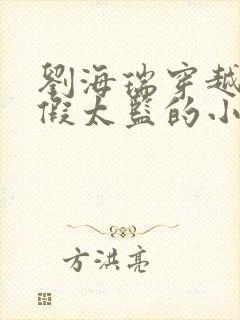 劉海瑞穿越
假太監的小
方洪亮